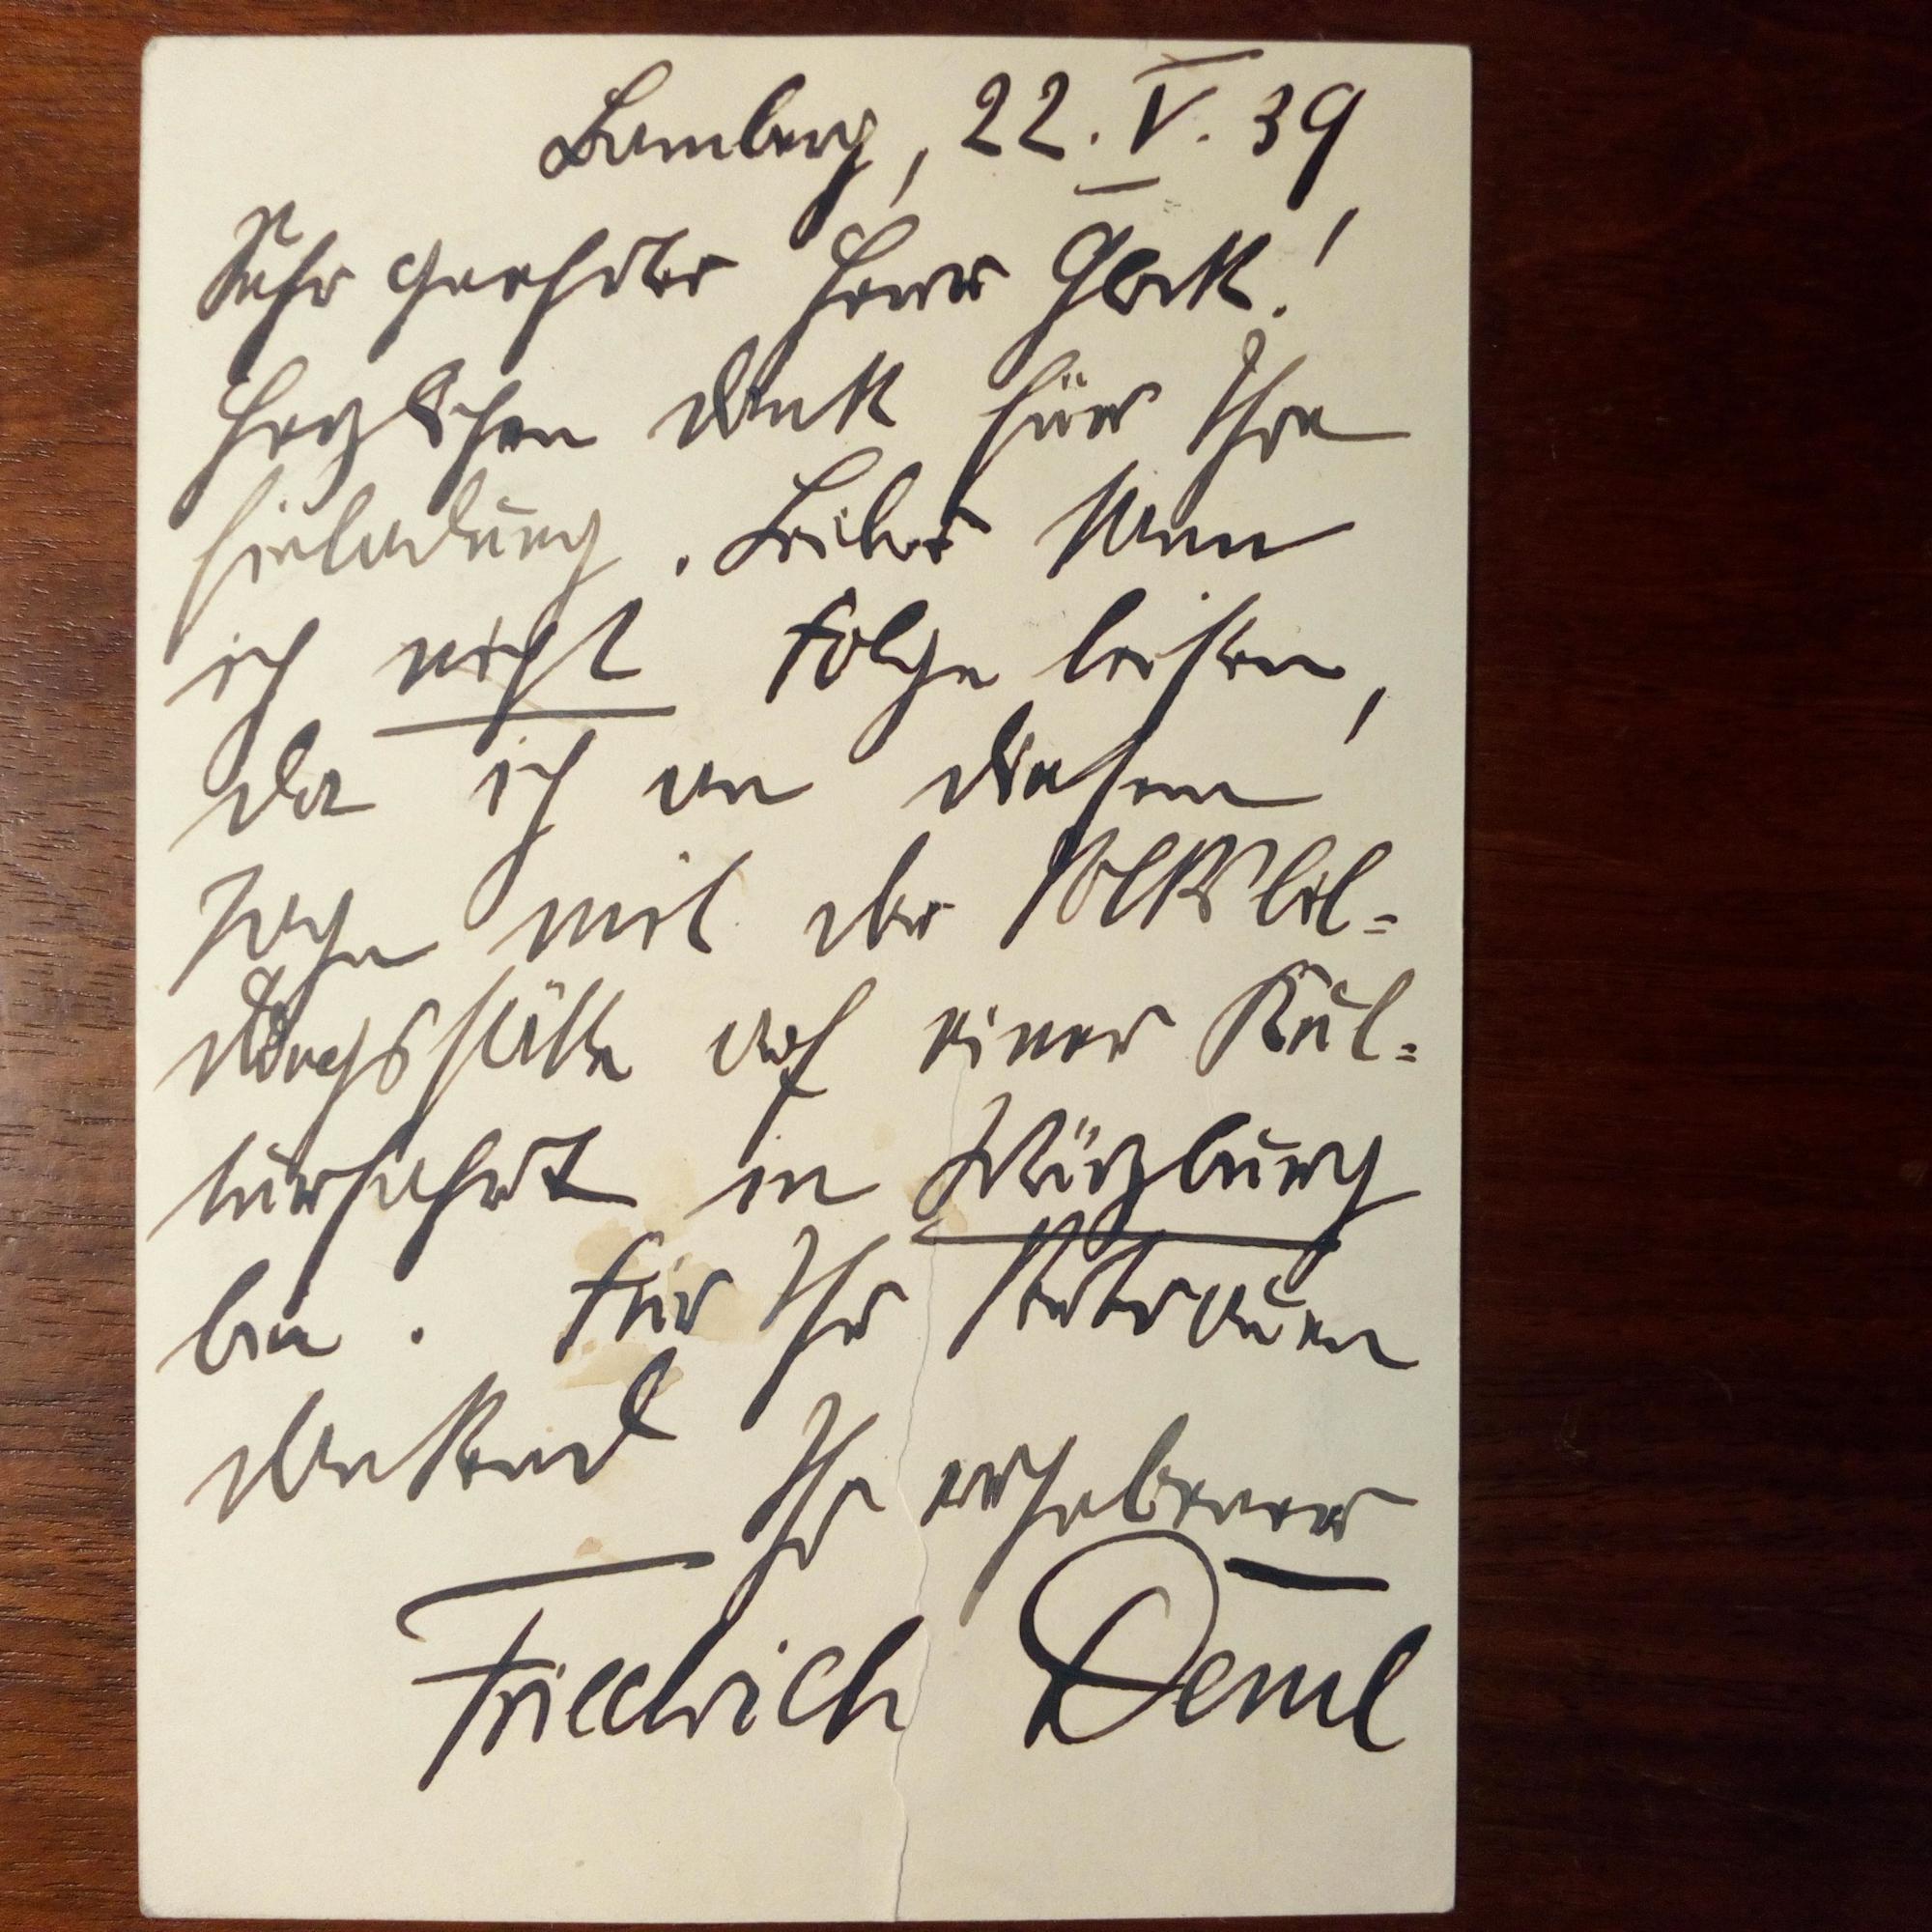 Bamberg, 22. V. 39
Sehr geehrter Herr Glock!
Herzlichen Dank für Ihre
Einladung. Leider kann
ich nicht Folge leisten,
da ich an diesem
Tage mit der Volksbil=
dungsstätte auf einer Kul=
turfahrt in Würzburg
bin. Für Ihr Vertrauen
dankend
Ihr ergebener
Friedrich Deml